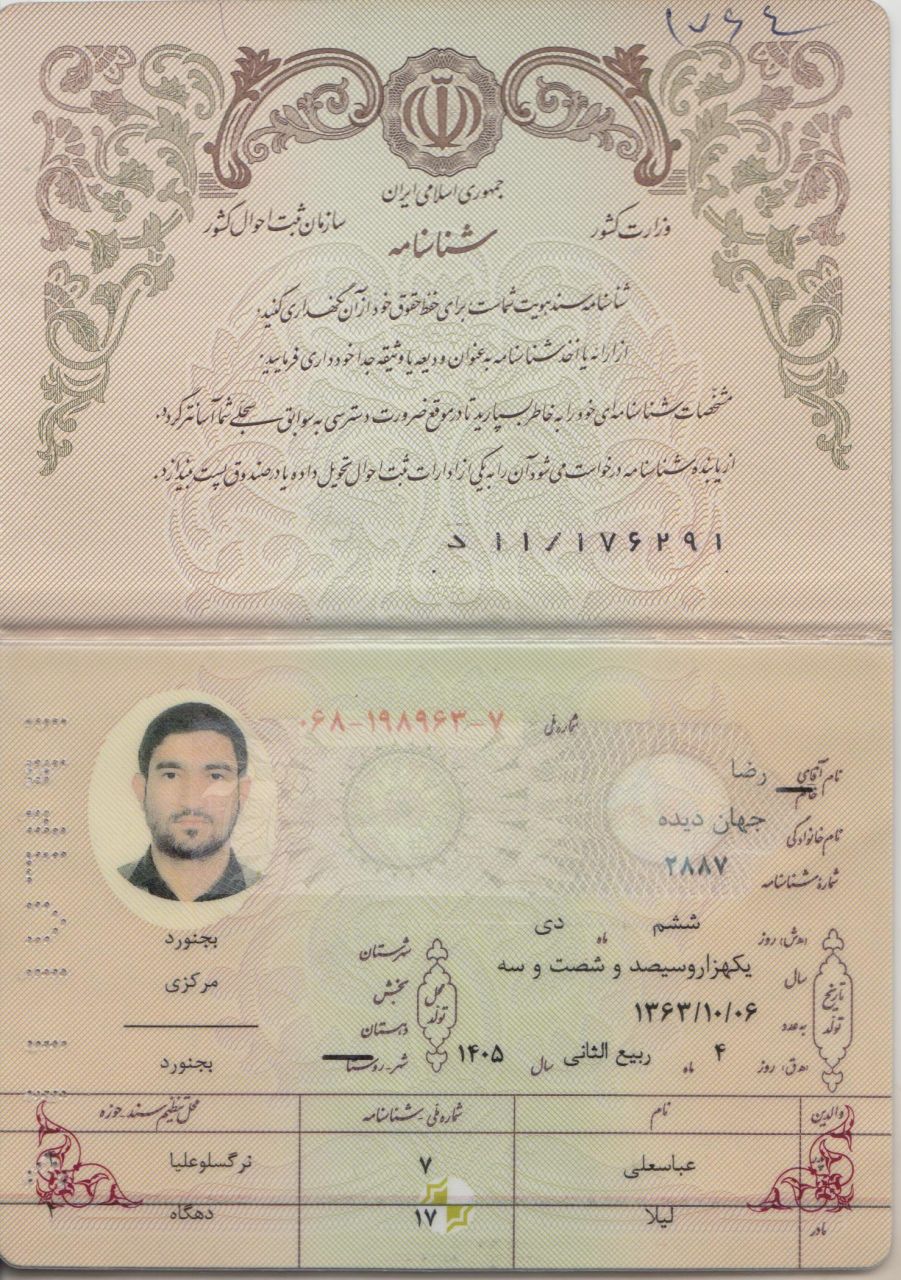 ۱۷۶۴
جمهوری اسلامی ایران
وزارت کشور
سازمان ثبت احوال کشور
شناسنامه
شناسنامه سند هویت شماست برای حفظ حقوق خود از آن نگهداری کنید.
از ارائه یا اخذ شناسنامه به عنوان ودیعه یا وثیقه جدا خودداری فرمایید.
مشخصات شناسنامه‌ای خود را به خاطر بسپارید تا در موقع ضرورت دسترسی به سوابق سجلی شما آسانتر گردد.
از یابنده شناسنامه درخواست می‌شود آن را به یکی از ادارات ثبت احوال تحویل داده یا در صندوق پست بیندازد.
د ۱۱/۱۷۶۲۹۱
شماره ملی ۰۶۸-۱۹۸۹۶۳-۷
نام آقای رضا
خانم
نام خانوادگی جهان دیده
شماره شناسنامه ۲۸۸۷
تاریخ تولد
(ه.ش) روز ششم ماه دی
سال یکهزاروسیصد و شصت و سه
به عدد ۱۳۶۳/۱۰/۰۶
(ه.ق) روز ۴ ماه ربیع الثانی سال ۱۴۰۵
محل تولد
شهرستان بجنورد
بخش مرکزی
دهستان
شهر-روستا بجنورد
والدین نام شماره ملی-شناسنامه محل تنظیم سند-حوزه
پدر عباسعلی ۷ نرگسلوعلیا ۲
مادر لیلا ۱۷ دهگاه ۴